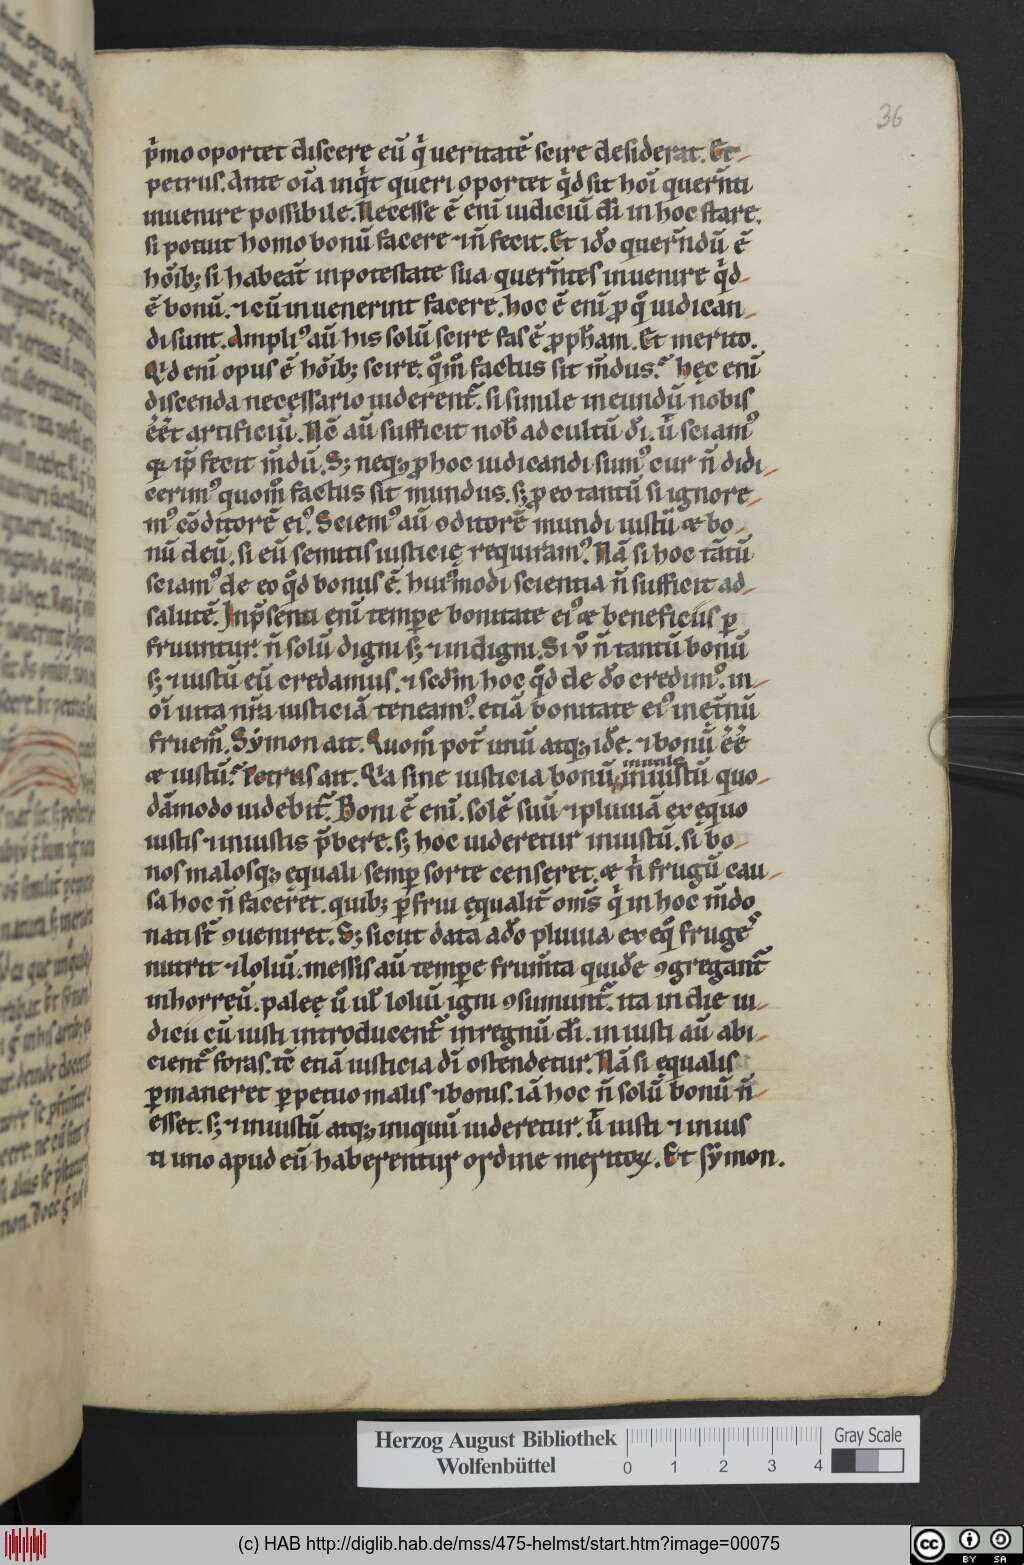 36
p̍mo oportet discere eū q̍ ueritatē scire desiderat. Et
petrus. Ante oīa inq̍t queri oportet q̍d sit hoī quer̄nti
inuenire possibile. Necesse ē enī iudiciū dī in hoc stare.
si potuit homo bonū facere ⁊ ñ fecit. Et iđo quer̄ndū ē
hōib; si habeāt in potestate sua quer̄ntes inuenire q̍d
ē bonū. ⁊ cū inuenerint facere. hoc ē enī ꝓ q̊ iudican
di sunt. Ampliꝰ aū his solū scire fas ē ꝓph̄am. Et merito.
Q̍d enī opus ē hōib; scire. q̊m̊ factus sit m̄dus. hęc enī
discenda necessario uiderent̄. si simile in eundū nobis
ēēt artificiū. Nc̄ aū sufficit nob̄ ad cultū dī. ut̄ sciamꝰ
qꝛ ip̄e fecit m̄dū. S; neq; ꝓ hoc iudicandi sumꝰ cur ñ didi
cerimꝰ quom̊ factus sit mundus. s; ꝓ eo tantū si ignore
mꝰ cōditorē eiꝰ. Sciemꝰ aū ꝯditorē mundi iustū æ bo
nū deū. si eū semitis iusticię requiramꝰ. Nā si hoc tātū
sciamꝰ de eo q̊d bonus ē. huiꝰmodi scientia ñ sufficit ad
salutē. In p̄senti enī tempe bonitate eiꝰ æ beneficiis ꝑ
fruuntur. ñ solū digni s; ⁊ indigni. Si ů ñ tantū bonū
s; ⁊ iustū eū credamus. ⁊ sedm̄ hoc q̊d de đo credimꝰ. in
oī uita nr̄a iusticiā teneamꝰ. etiā bonitate eiꝰ in et̄nū
fruem̄. Sẏmon ait. Quom̊ pot̄ unū atq; iđē. ⁊ bonū ēē
æ iustū. Petrus ait. Q̍a sine iusticia bonū iniustū quo
inutile
dāmodo uidebit̄. Boni ē enī. solē suū ⁊ pluuiā ex ęquo
iustis ⁊ iniustis p̄bere. s; hoc uideretur iniustū. si bo
nos malosq; ęquali semꝑ sorte censeret. æ n̍ frugū cau
sa hoc ñ faceret. quib; ꝑfrui ęqualit̄ om̄s q̍ in hoc m̄do
nati st̄ ꝯueniret. S; sicut data ađo pluuia ex eq̊ fruges
nutrit ⁊ loliū. messis aū tempe frum̄ta quidē ꝯgregant̄
in horreū. paleę ū uł loliū igni ꝯsumunt̄. ita in die iu
dicii cū iusti introducent̄ in regnū dī. iniusti aū abi
cient̄ foras. tc̄ etiā iusticia dī ostendetur. Nā si ęqualis
ꝑmaneret ꝑpetuo malis ⁊ bonis. iā hoc ñ solū bonū ñ
esset. s; ⁊ iniustū atq; iniquū uideretur. ut̄ iusti ⁊ inius
ti uno apud eū haberentur ordine meritoꝝ. Et sẏmon.
Herzog August Bibliothek
Wolfenbüttel
0 1 2 3 4
Gray Scale
(c) HAB http://diglib.hab.de/mss/475-helmst/start.htm?image=00075
cc BY SA